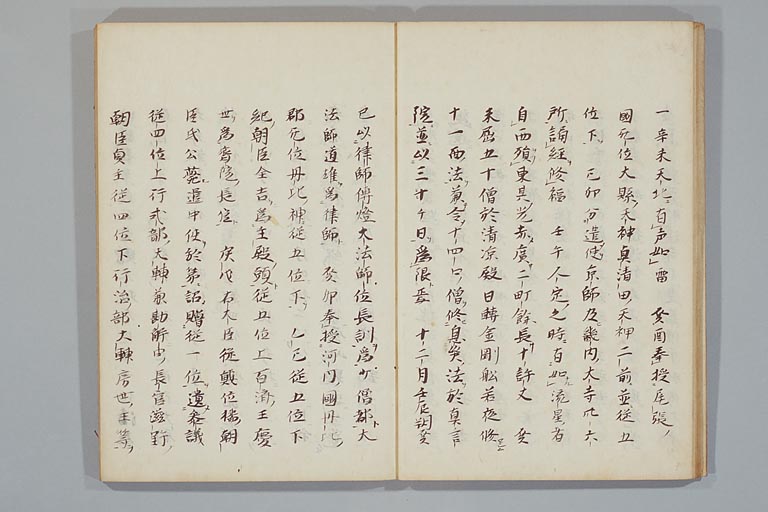 一辛未天北有声如雷癸酉奉授尾張
國无位大縣天神眞清田天神二前並從五
位下己卯分遣使京師及畿内大寺凡六
所誦經修福壬午人定之時有如流星者
自西殞東其光赤廣二町餘長十許丈癸
未啓五十僧於清凉殿日轉金剛般若夜修
十一面法兼令十四口僧修息災法於眞言
院並以三十ケ日爲限焉十二月壬辰朔癸
巳以律師傳燈大法師位長訓爲少僧都大
法師道雄爲律師癸卯奉授河内國丹比
郡无位丹比神從五位下乙巳從五位下
紀朝臣全吉爲主殿頭從五位上百濟王慶
世爲齋院長官庚戌右大臣從二位橘朝
臣氏公薨遣中使於第詔贈從一位遣参議
從四位上行式部大輔兼勘解由長官滋野
朝臣貞主從四位下行治部大輔房世王等